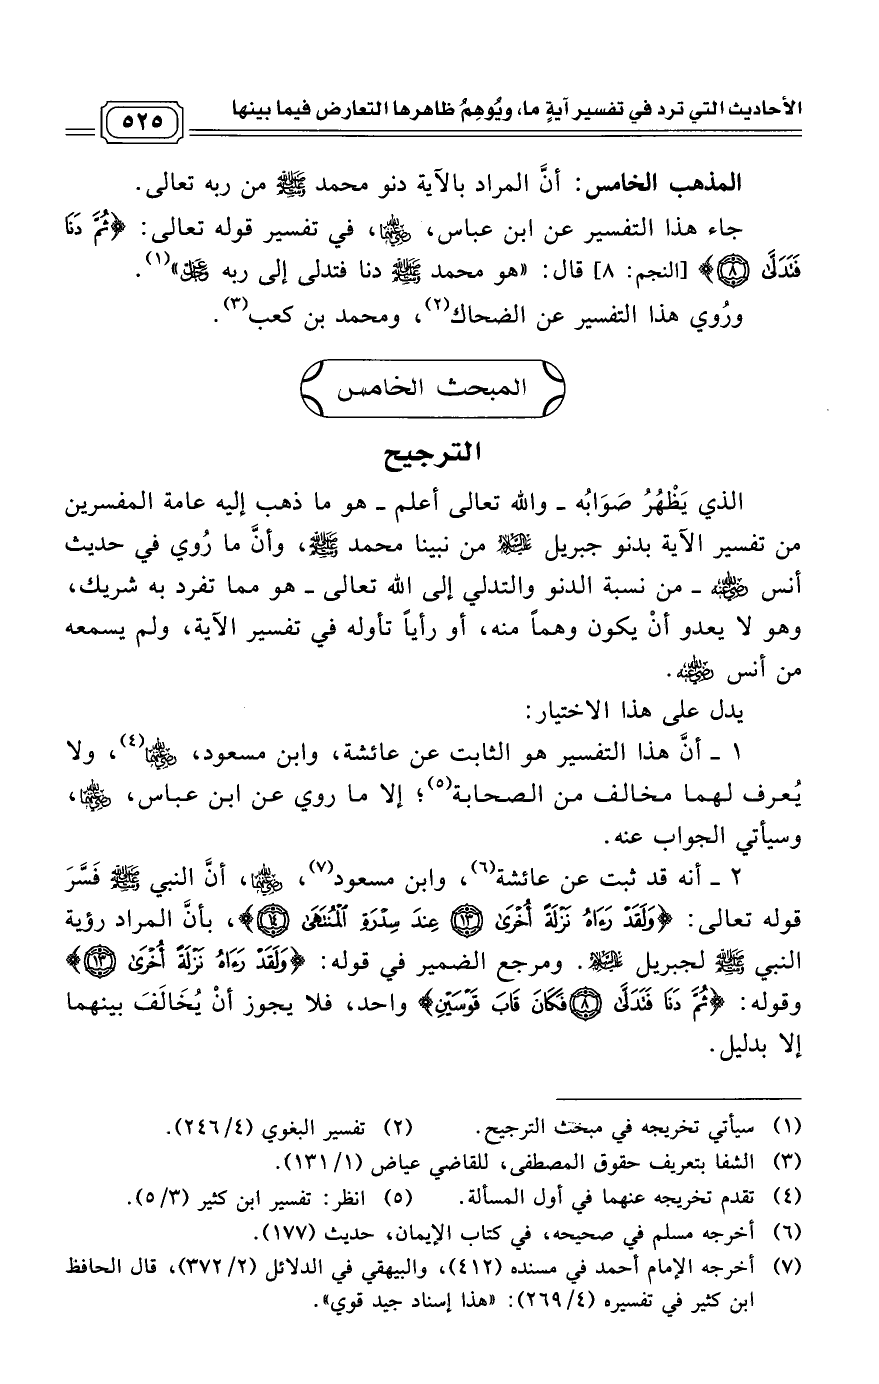 الأحاديث التي ترد في تفسير آيةٍ ما، ويُوهِمُ ظاهرها التعارض فيما بينها
٥٢٥
المذهب الخامس: أنَّ المراد بالآية دنو محمد ﷺ من ربه تعالى.
جاء هذا التفسير عن ابن عباس، رضي الله عنهما، في تفسير قوله تعالى: ﴿ثُمَّ دَنَا
فَتَدَلَّىٰ ٨﴾ [النجم: ٨] قال: «هو محمد ﷺ دنا فتدلى إلى ربه عز وجل»(١).
ورُوي هذا التفسير عن الضحاك(٢)، ومحمد بن كعب(٣).
المبحث الخامس
الترجيح
الذي يَظْهَرُ صَوَابُه ـ والله تعالى أعلم ـ هو ما ذهب إليه عامة المفسرين
من تفسير الآية بدنو جبريل عليه السلام من نبينا محمد ﷺ، وأنَّ ما رُوي في حديث
أنس رضي الله عنه ـ من نسبة الدنو والتدلي إلى الله تعالى ـ هو مما تفرد به شريك،
وهو لا يعدو أنْ يكون وهماً منه، أو رأياً تأوله في تفسير الآية، ولم يسمعه
من أنس رضي الله عنه.
يدل على هذا الاختيار:
١ ـ أنَّ هذا التفسير هو الثابت عن عائشة، وابن مسعود، رضي الله عنهما(٤)، ولا
يُعرف لهما مخالف من الصحابة(٥)؛ إلا ما روي عن ابن عباس، رضي الله عنهما،
وسيأتي الجواب عنه.
٢ ـ أنه قد ثبت عن عائشة(٦)، وابن مسعود(٧)، رضي الله عنهما، أنَّ النبي ﷺ فَسَّرَ
قوله تعالى: ﴿وَلَقَدْ رَءَاهُ نَزْلَةً أُخْرَىٰ ١٣ عِندَ سِدْرَةِ ٱلْمُنتَهَىٰ ١٤﴾، بأنَّ المراد رؤية
النبي ﷺ لجبريل عليه السلام. ومرجع الضمير في قوله: ﴿وَلَقَدْ رَءَاهُ نَزْلَةً أُخْرَىٰ ١٣﴾
وقوله: ﴿ثُمَّ دَنَا فَتَدَلَّىٰ ٨ فَكَانَ قَابَ قَوْسَيْنِ﴾ واحد، فلا يجوز أنْ يُخَالَفَ بينهما
إلا بدليل.
(١) سيأتي تخريجه في مبحث الترجيح. (٢) تفسير البغوي (٤/ ٢٤٦).
(٣) الشفا بتعريف حقوق المصطفى، للقاضي عياض (١/ ١٣١).
(٤) تقدم تخريجه عنهما في أول المسألة. (٥) انظر: تفسير ابن كثير (٣/ ٥).
(٦) أخرجه مسلم في صحيحه، في كتاب الإيمان، حديث (١٧٧).
(٧) أخرجه الإمام أحمد في مسنده (٤١٢)، والبيهقي في الدلائل (٢/ ٣٧٢)، قال الحافظ
ابن كثير في تفسيره (٤/ ٢٦٩): «هذا إسناد جيد قوي».